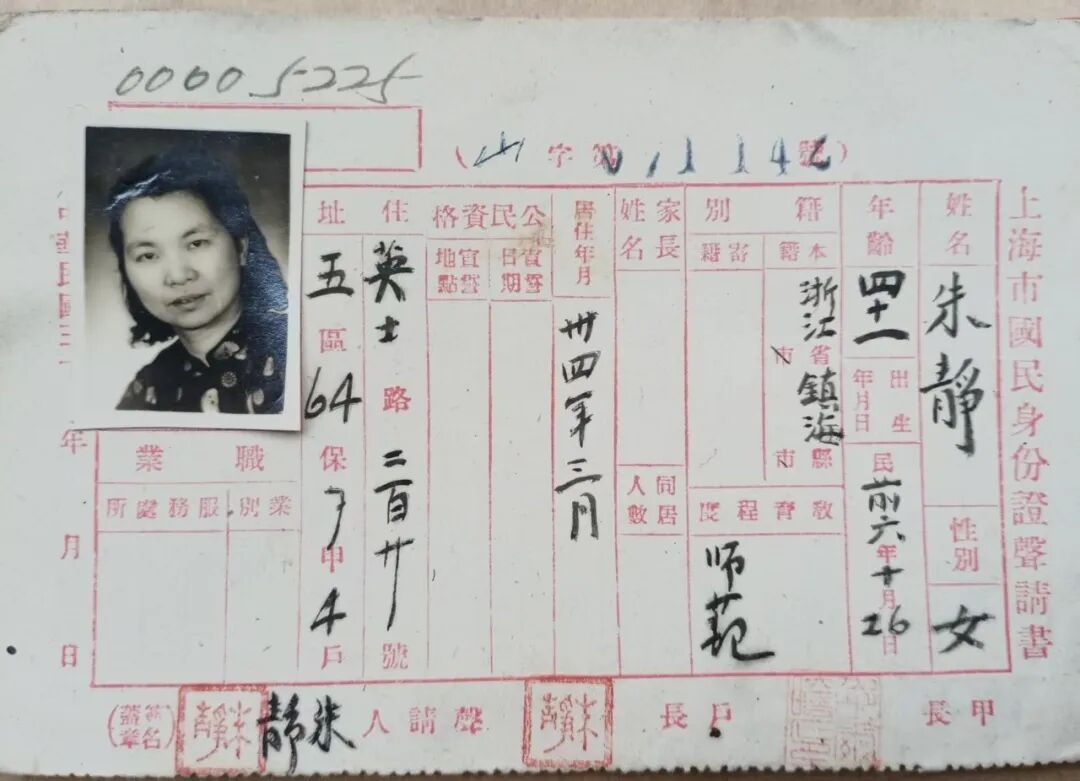 00005225
(山字第01142號)
上海市國民身份證聲請書
姓名
朱靜
性別
女
年齡
四十一
出生年月日
民前六年十月26日
籍別
本籍
寄籍
浙江省市
鎮海縣市
教育程度
师范
家長姓名
同居人數
居住年月
卅四年三月
公民資格
宣誓日期
宣誓地點
住址
英士路二百廿號
五區64保7甲4戶
職業
業別
服務處所
中華民國三十年月日
甲長
戶長
朱靜
聲請人
朱靜
朱靜
(簽名蓋章)